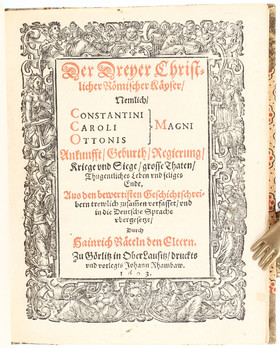 Der Dreyer Christ-
licher Römischer Käyser/
Nemlich/
CONSTANTINI
CAROLI } MAGNI
OTTONIS
Ankunfft/ Geburth/ Regierung/
Kriege vnd Siege/ grosse Thaten/
Thugentliches Leben vnd seliges
Ende,
Aus den bewertisten Geschichtschrei-
bern trewlich zusamen verfasset/ vnd
in die Deutsche Sprache
vbergesetzt/
Durch
Hainrich Räteln den Eltern.
Zu Görlitz in OberLausitz/ druckts
vnd verlegts Johann Rhambaw.
1603.